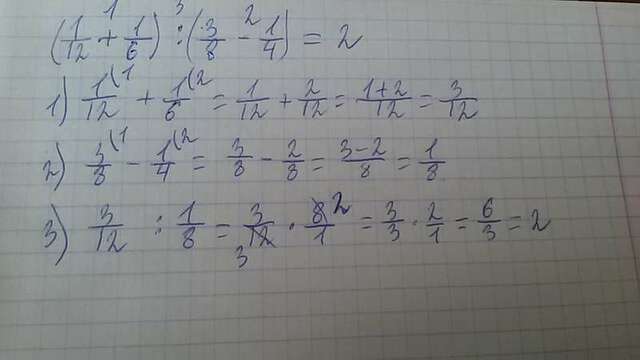 (1/12 + 1/6) : (3/8 - 1/4) = 2
1) 1/12 + 1/6 = 1/12 + 2/12 = 1+2/12 = 3/12
2) 3/8 - 1/4 = 3/8 - 2/8 = 3-2/8 = 1/8
3) 3/12 : 1/8 = 3/12 · 8/1 = 3/3 · 2/1 = 6/3 = 2